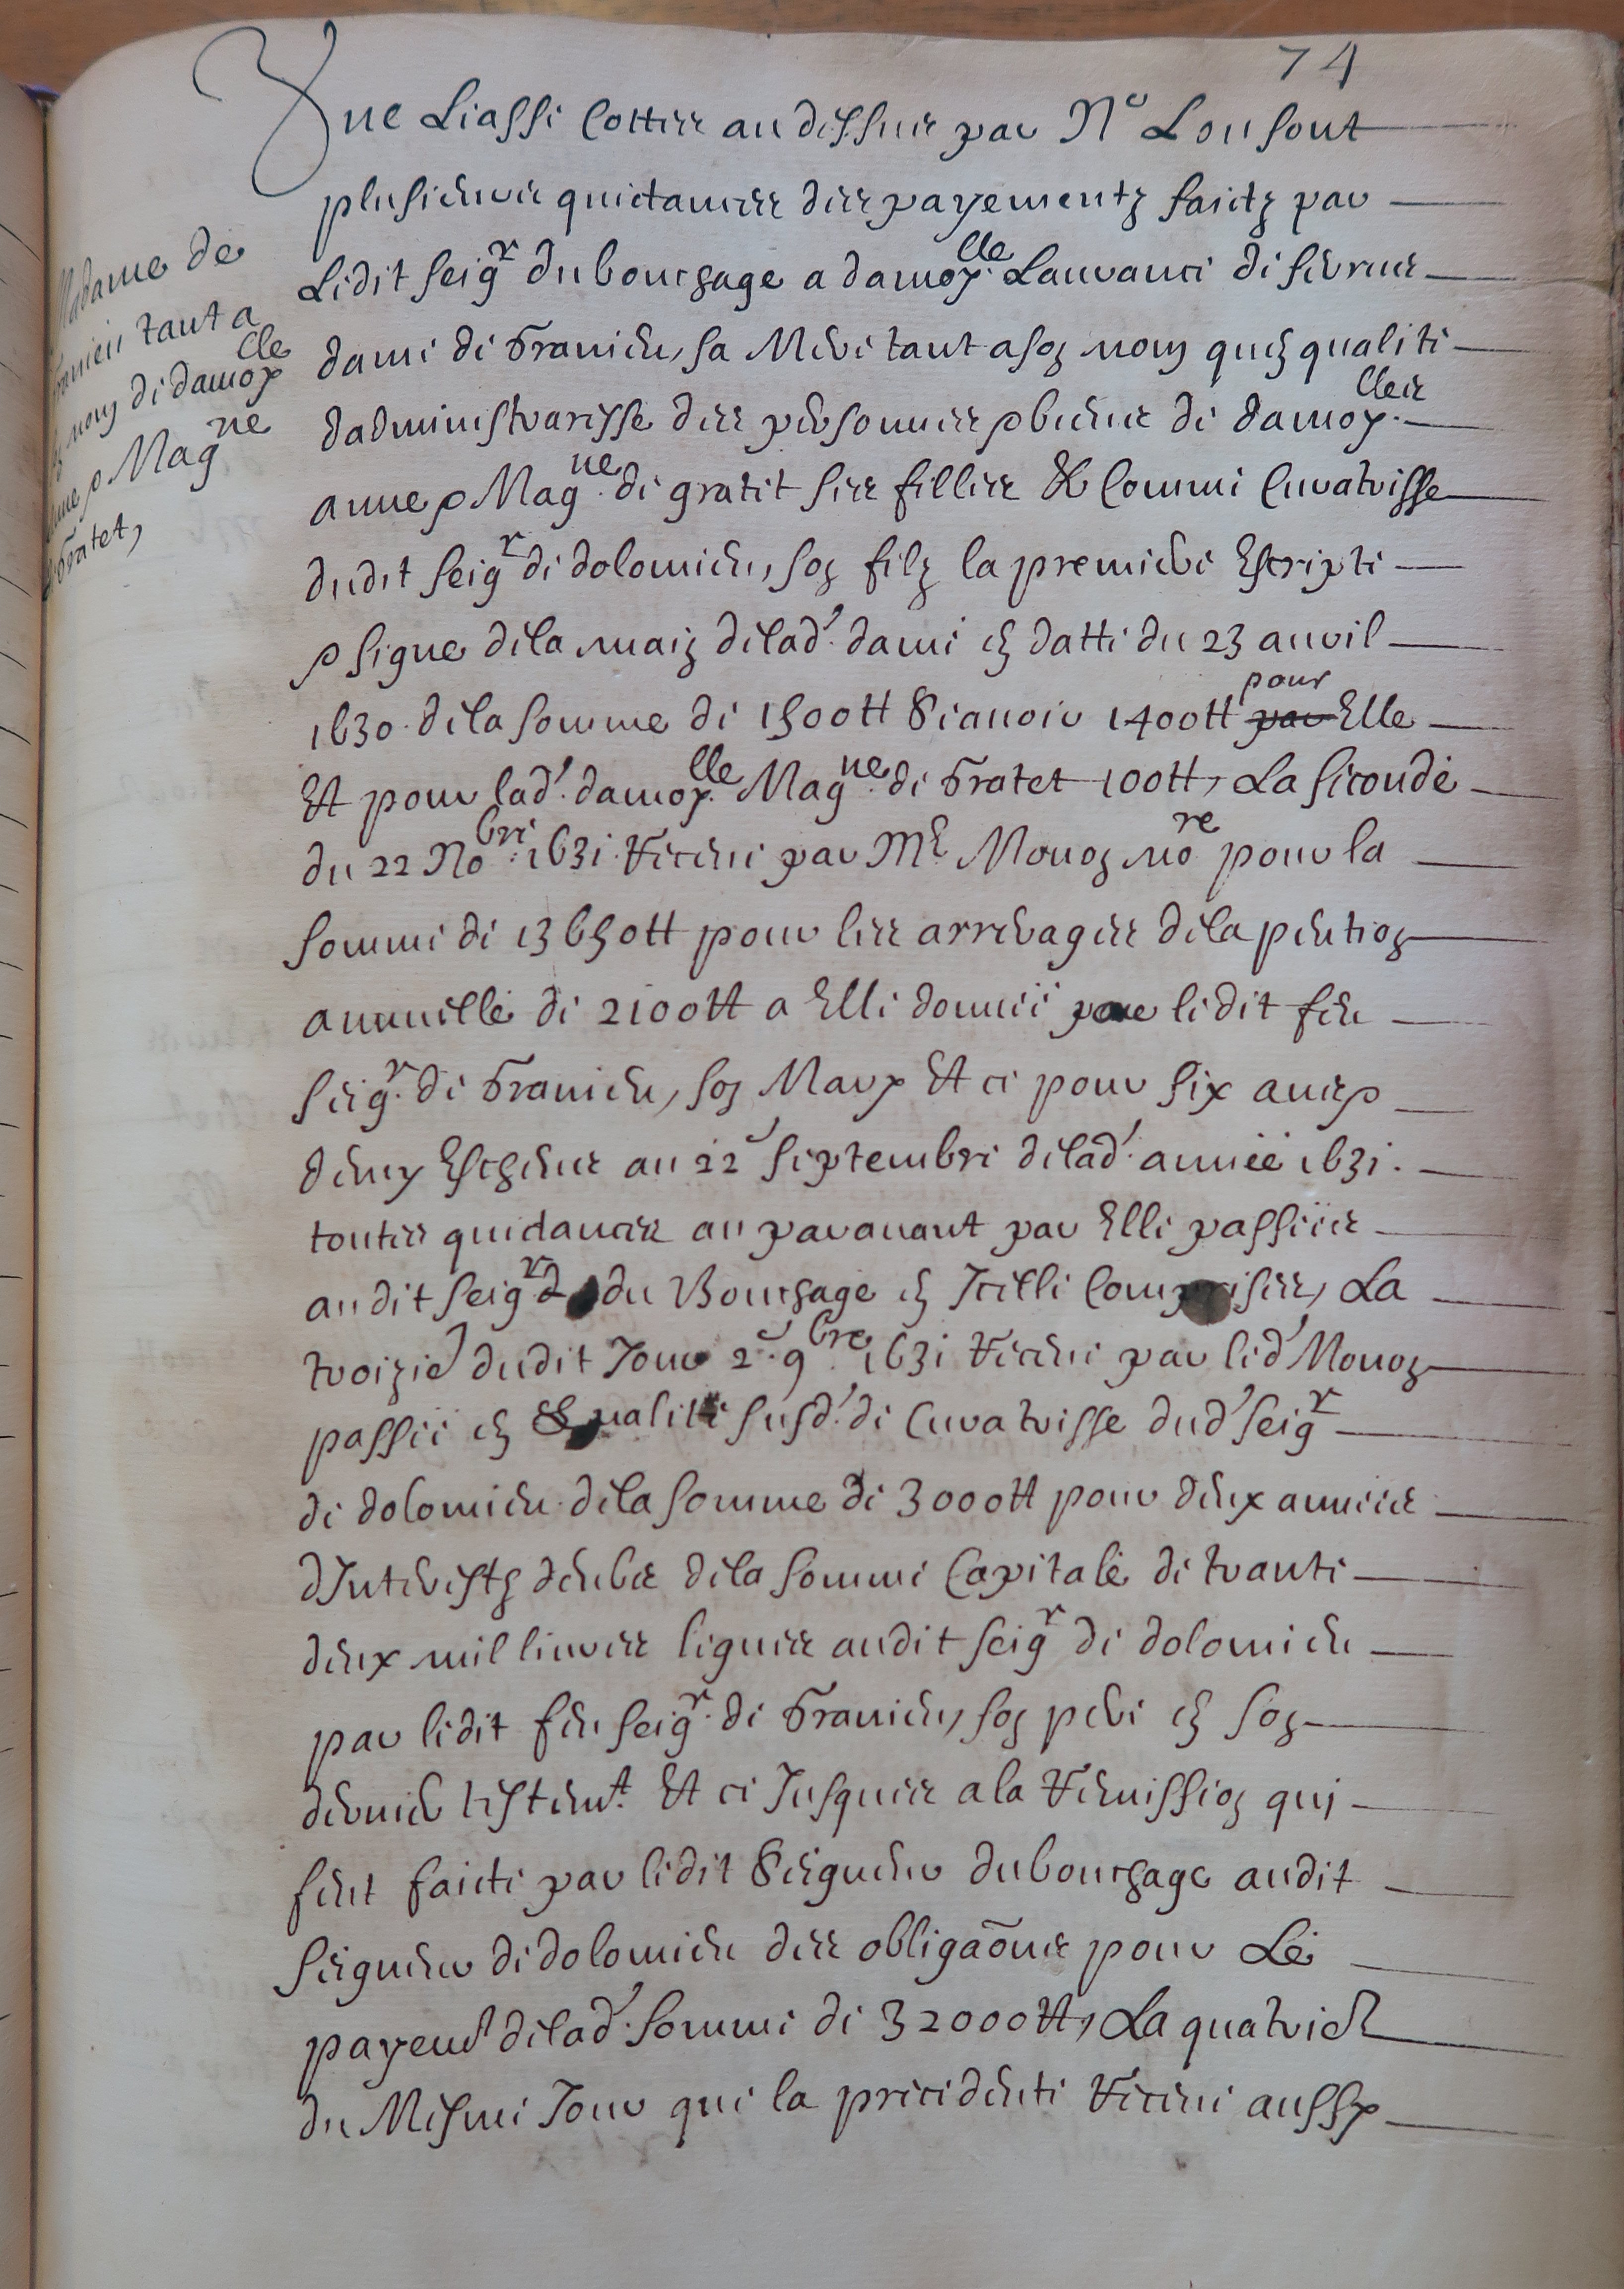 74
Une Liasse Cottee au dessus par N° L ou sont
plusieurs quictances des payementz faictz par
Ledit seigr du bouchage a damoylle Lauvance de fievres
dame de Granieu, sa Mere tant a son nom qu'en qualite
d'administraresse des personnes & biens de damoylles
anne & Magne de gratet ses filles & Comme Curatrisse
dudit seigr de dolomieu, son filz la premiere Escripte
& signe de la main de lad' dame en datte du 23 auril
1630 de la somme de 1500tt Scauoir 1400tt par pour Elle
Et pour lad' damoylle Magne de Gratet 100tt, La seconde
du 22 Nobre 1631 Receue par Me Monon nore pour la
somme de 13650tt pour les arrerages de la pention
annuelle de 2100tt a Elle donnee par ledit feu
seigr de Granieu, son Mary Et ce pour six ans &
demy Escheus au 22e septembre de lad' annee 1631.
toutes quictances au parauant par Elle passees
audit seigr du Bouchage en Icelle Comprises, La
troizie dudit Jour 2e 9bre 1631 Receue par led' Monon
passee en qualite susd' de Curatrisse dud' seigr
de dolomieu de la somme de 3000tt pour deux annees
d'Interestz deubs de la somme Capitale de trante
deux mil liures leguees audit seigr de dolomieu
par ledit feu seigr de Granieu, son pere en son
dernier testemt Et ce Jusques a la Remission qui
feut faicte par ledit Seigneur du bouchage audit
seigneur de dolomieu des obligaões pour Le
payemt de lad' somme de 32000tt, La quatrie
du Mesme Jour que la precedente Receue aussy
Madame de
Granieu tant a
son nom de damoylle
anne & Magne
de Gratet,